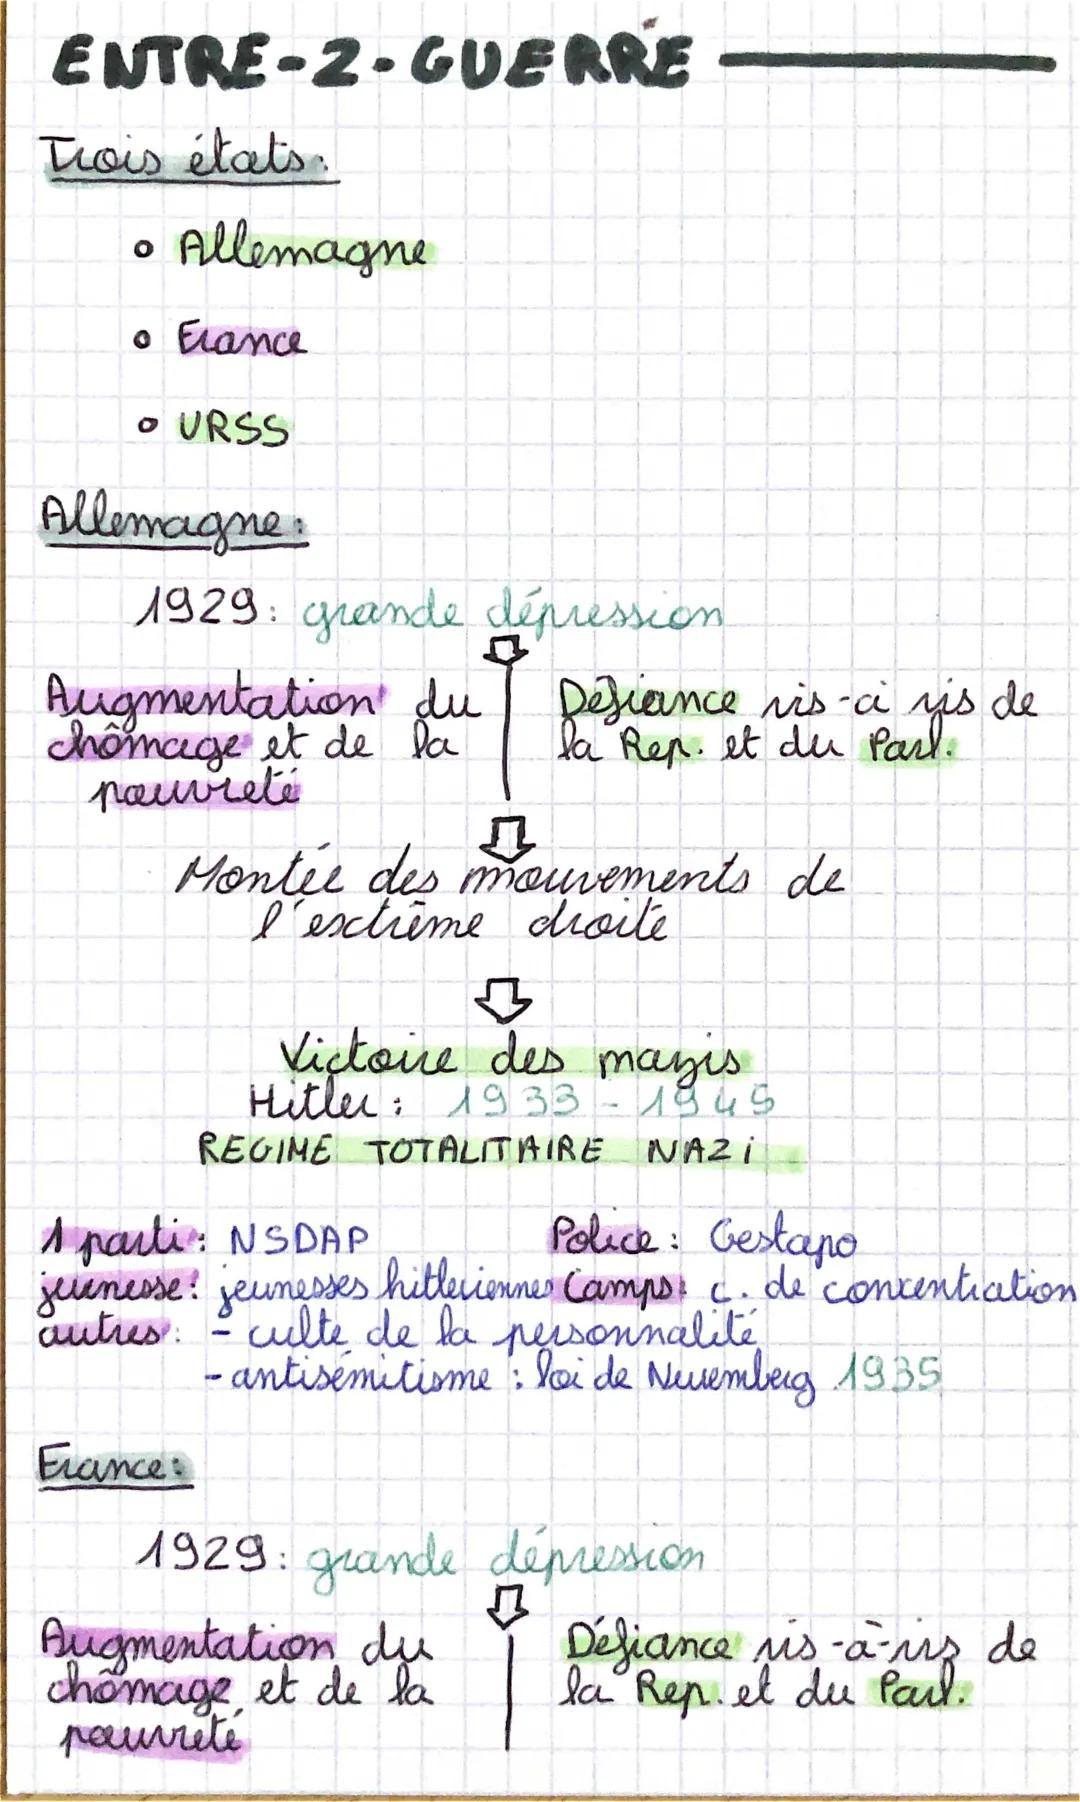 ENTRE-2-GUERRE
Trois états:
Allemagne
France
URSS
Allemagne:
1929: grande dépression
Augmentation du
chômage et de la
pauvreté
Défiance vis-à vis de
la Rep. et du Parl.
Montée des mouvements de
l'extrême droite
Victoire des nazis
Hitler: 1933-1945
REGIME TOTALITAIRE NAZi
1 parti: NSDAP
Police: Gestapo
jeunesse: jeunesses hitleriennes
Camps: c. de concentration
autres: - culte de la personnalité
- antisémitisme: loi de Nuremberg 1935
France:
1929: grande dépression
Augmentation du
chômage et de la
pauvreté
Défiance vis-à-vis de
la Rep. et du Parl.